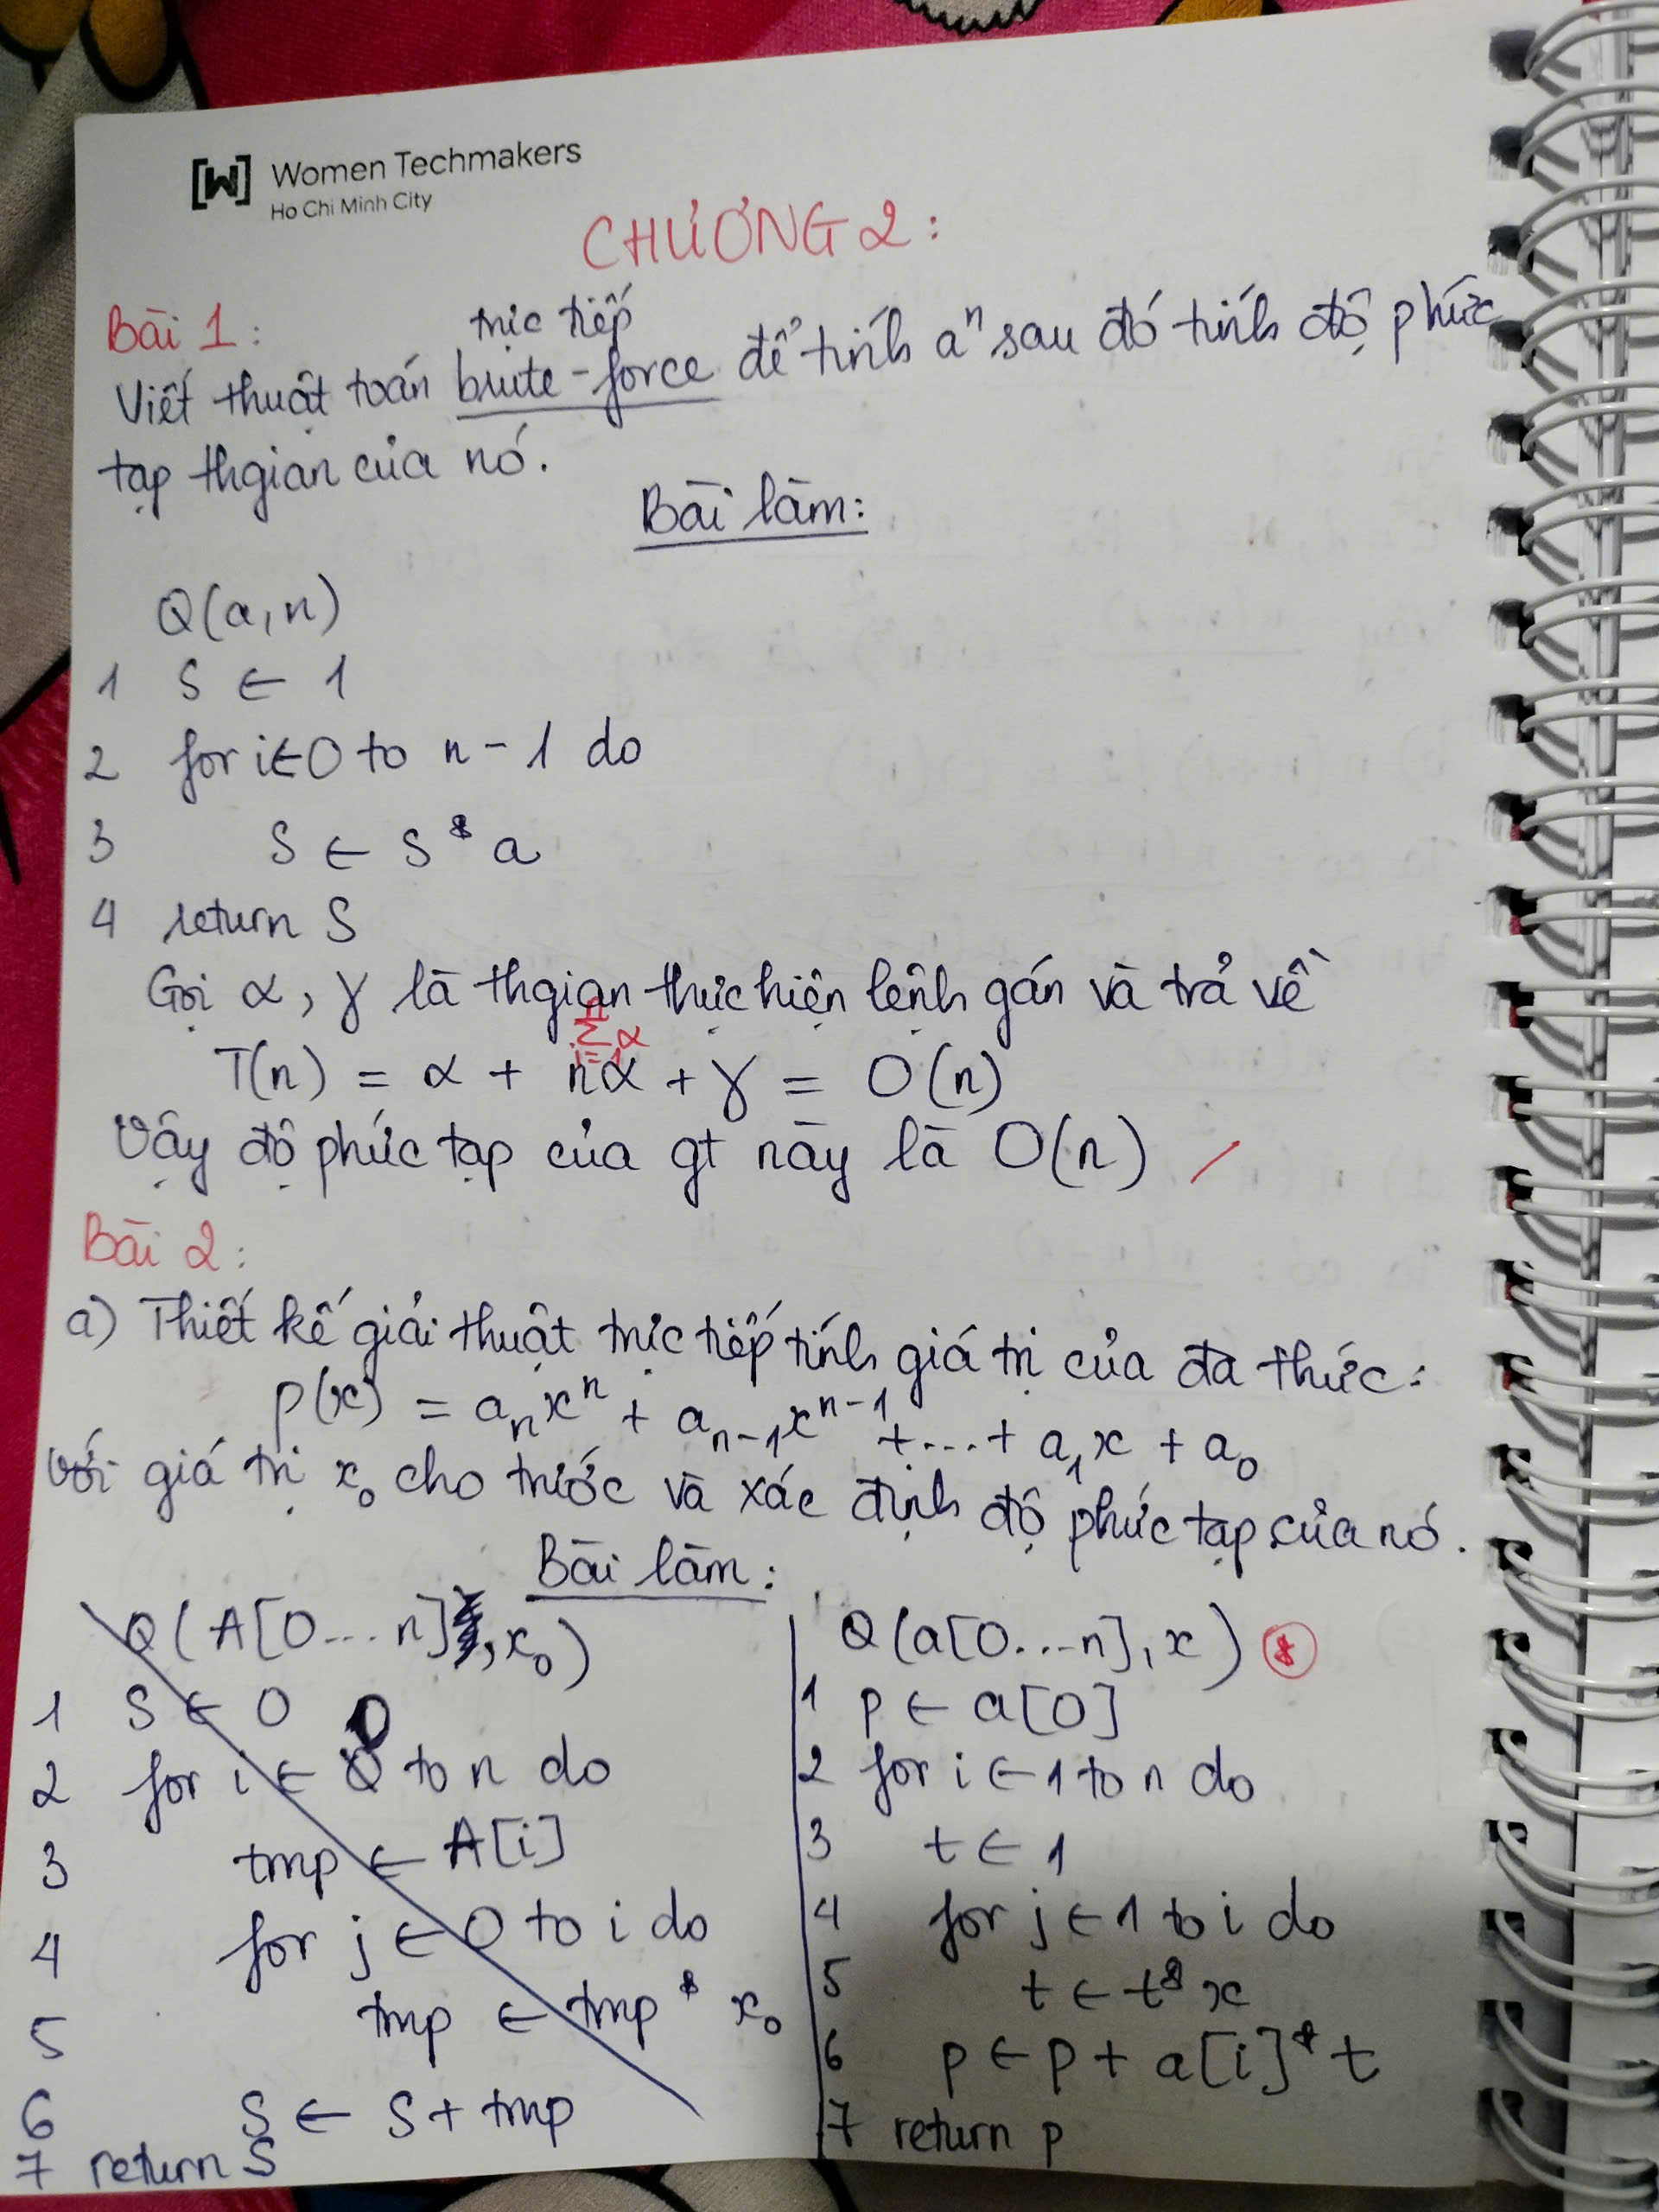 [W] Women Techmakers
Ho Chi Minh City
CHƯƠNG 2:
Bài 1:
trực tiếp
Viết thuật toán brute-force để tính aⁿ sau đó tính độ phức
tạp thgian của nó.
Bài làm:
Q(a,n)
1 S ← 1
2 for i←0 to n-1 do
3 S ← S * a
4 return S
Gọi α, γ là thgian thực hiện lệnh gán và trả về
n
∑ α
i=1
T(n) = α + nα + γ = O(n)
Vậy độ phức tạp của gt này là O(n)
Bài 2:
a) Thiết kế giải thuật trực tiếp tính giá trị của đa thức:
p(x) = aₙxⁿ + aₙ₋₁xⁿ⁻¹ +...+ a₁x + a₀
với giá trị x₀ cho trước và xác định độ phức tạp của nó.
Bài làm:
Q(A[0...n], x₀)
1 S ← 0
2 for i ← 0 to n do
3 tmp ← A[i]
4 for j ← 0 to i do
5 tmp ← tmp * x₀
6 S ← S + tmp
7 return S
Q(a[0...n], x) *
1 p ← a[0]
2 for i ← 1 to n do
3 t ← 1
4 for j ← 1 to i do
5 t ← t * x
6 p ← p + a[i] * t
7 return p